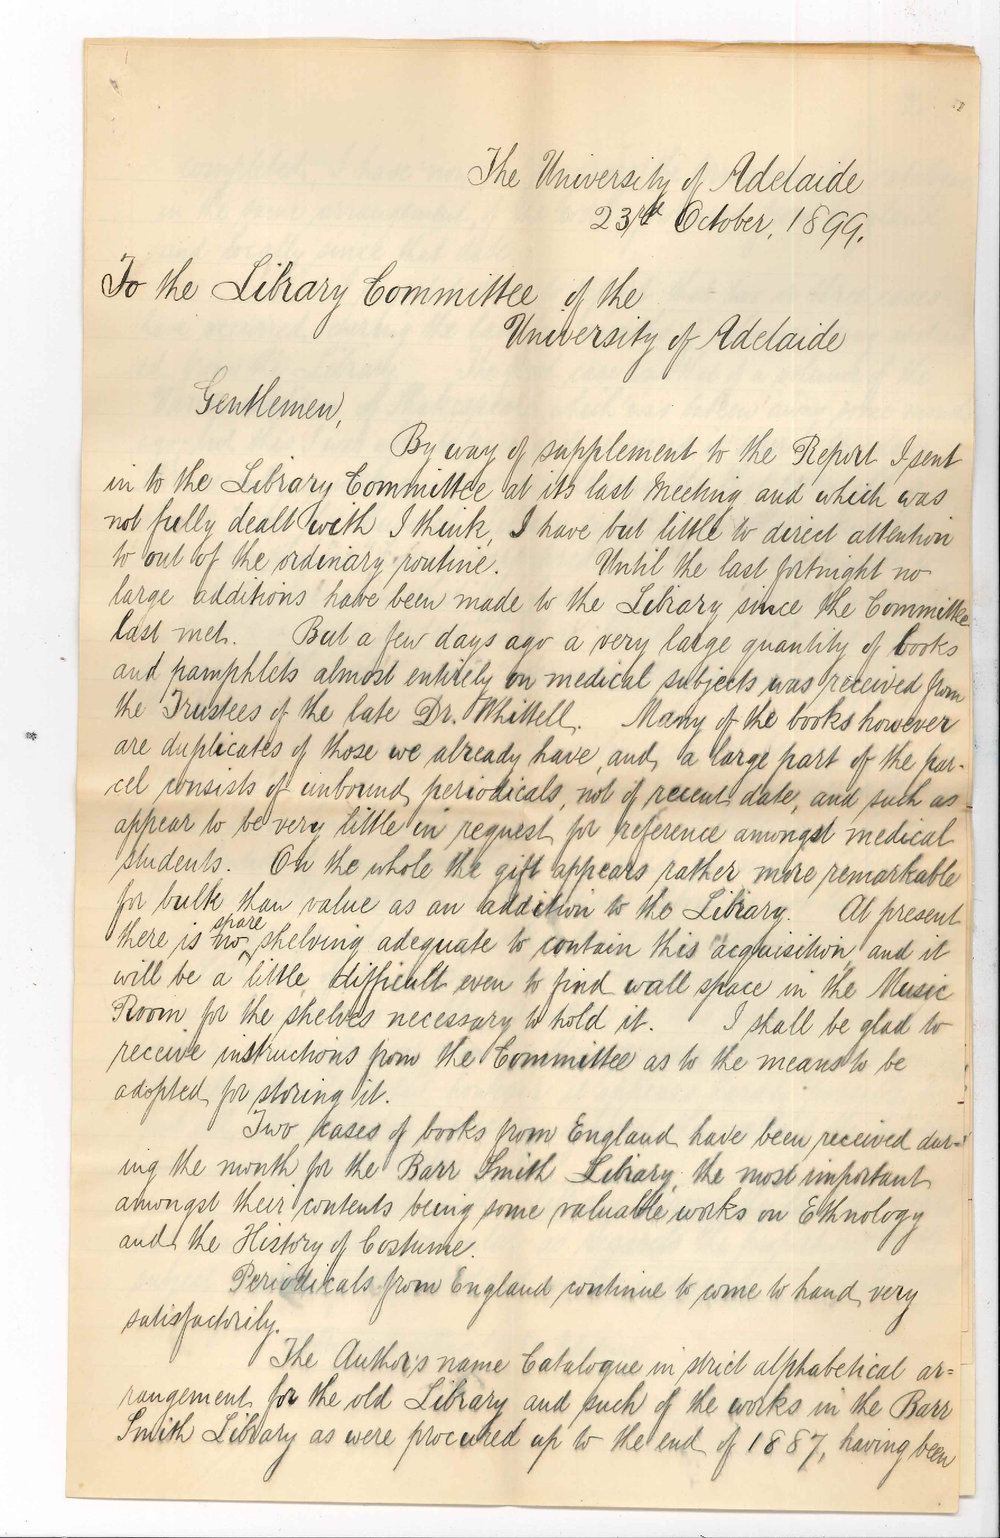 The University of Adelaide
23rd October, 1899.
To the Library Committee of the
University of Adelaide
Gentlemen,
By way of supplement to the Report I sent
in to the Library Committee at its last Meeting and which was
not fully dealt with I think, I have but little to direct attention
to out of the ordinary routine. Until the last fortnight no
large additions have been made to the Library since the Committee
last met. But a few days ago a very large quantity of books
and pamphlets almost entirely on medical subjects was received from
the Trustees of the late Dr. Whittell. Many of the books however
are duplicates of those we already have, and a large part of the par-
cel consists of unbound periodicals, not of recent date, and such as
appear to be very little in request for reference amongst medical
students. On the whole the gift appears rather more remarkable
for bulk than value as an addition to the Library. At present
there is no spare shelving adequate to contain this acquisition, and it
will be a little difficult even to find wall space in the Music
Room for the shelves necessary to hold it. I shall be glad to
receive instructions from the Committee as to the means to be
adopted for storing it.
Two cases of books from England have been received dur=
ing the month for the Barr Smith Library, the most important
amongst their contents being some valuable works on Ethnology
and the History of Costume.
Periodicals from England continue to come to hand very
satisfactorily.
The Author's name Catalogue in strict alphabetical ar=
rangement for the old Library and such of the works in the Barr
Smith Library as were procured up to the end of 1887, having been